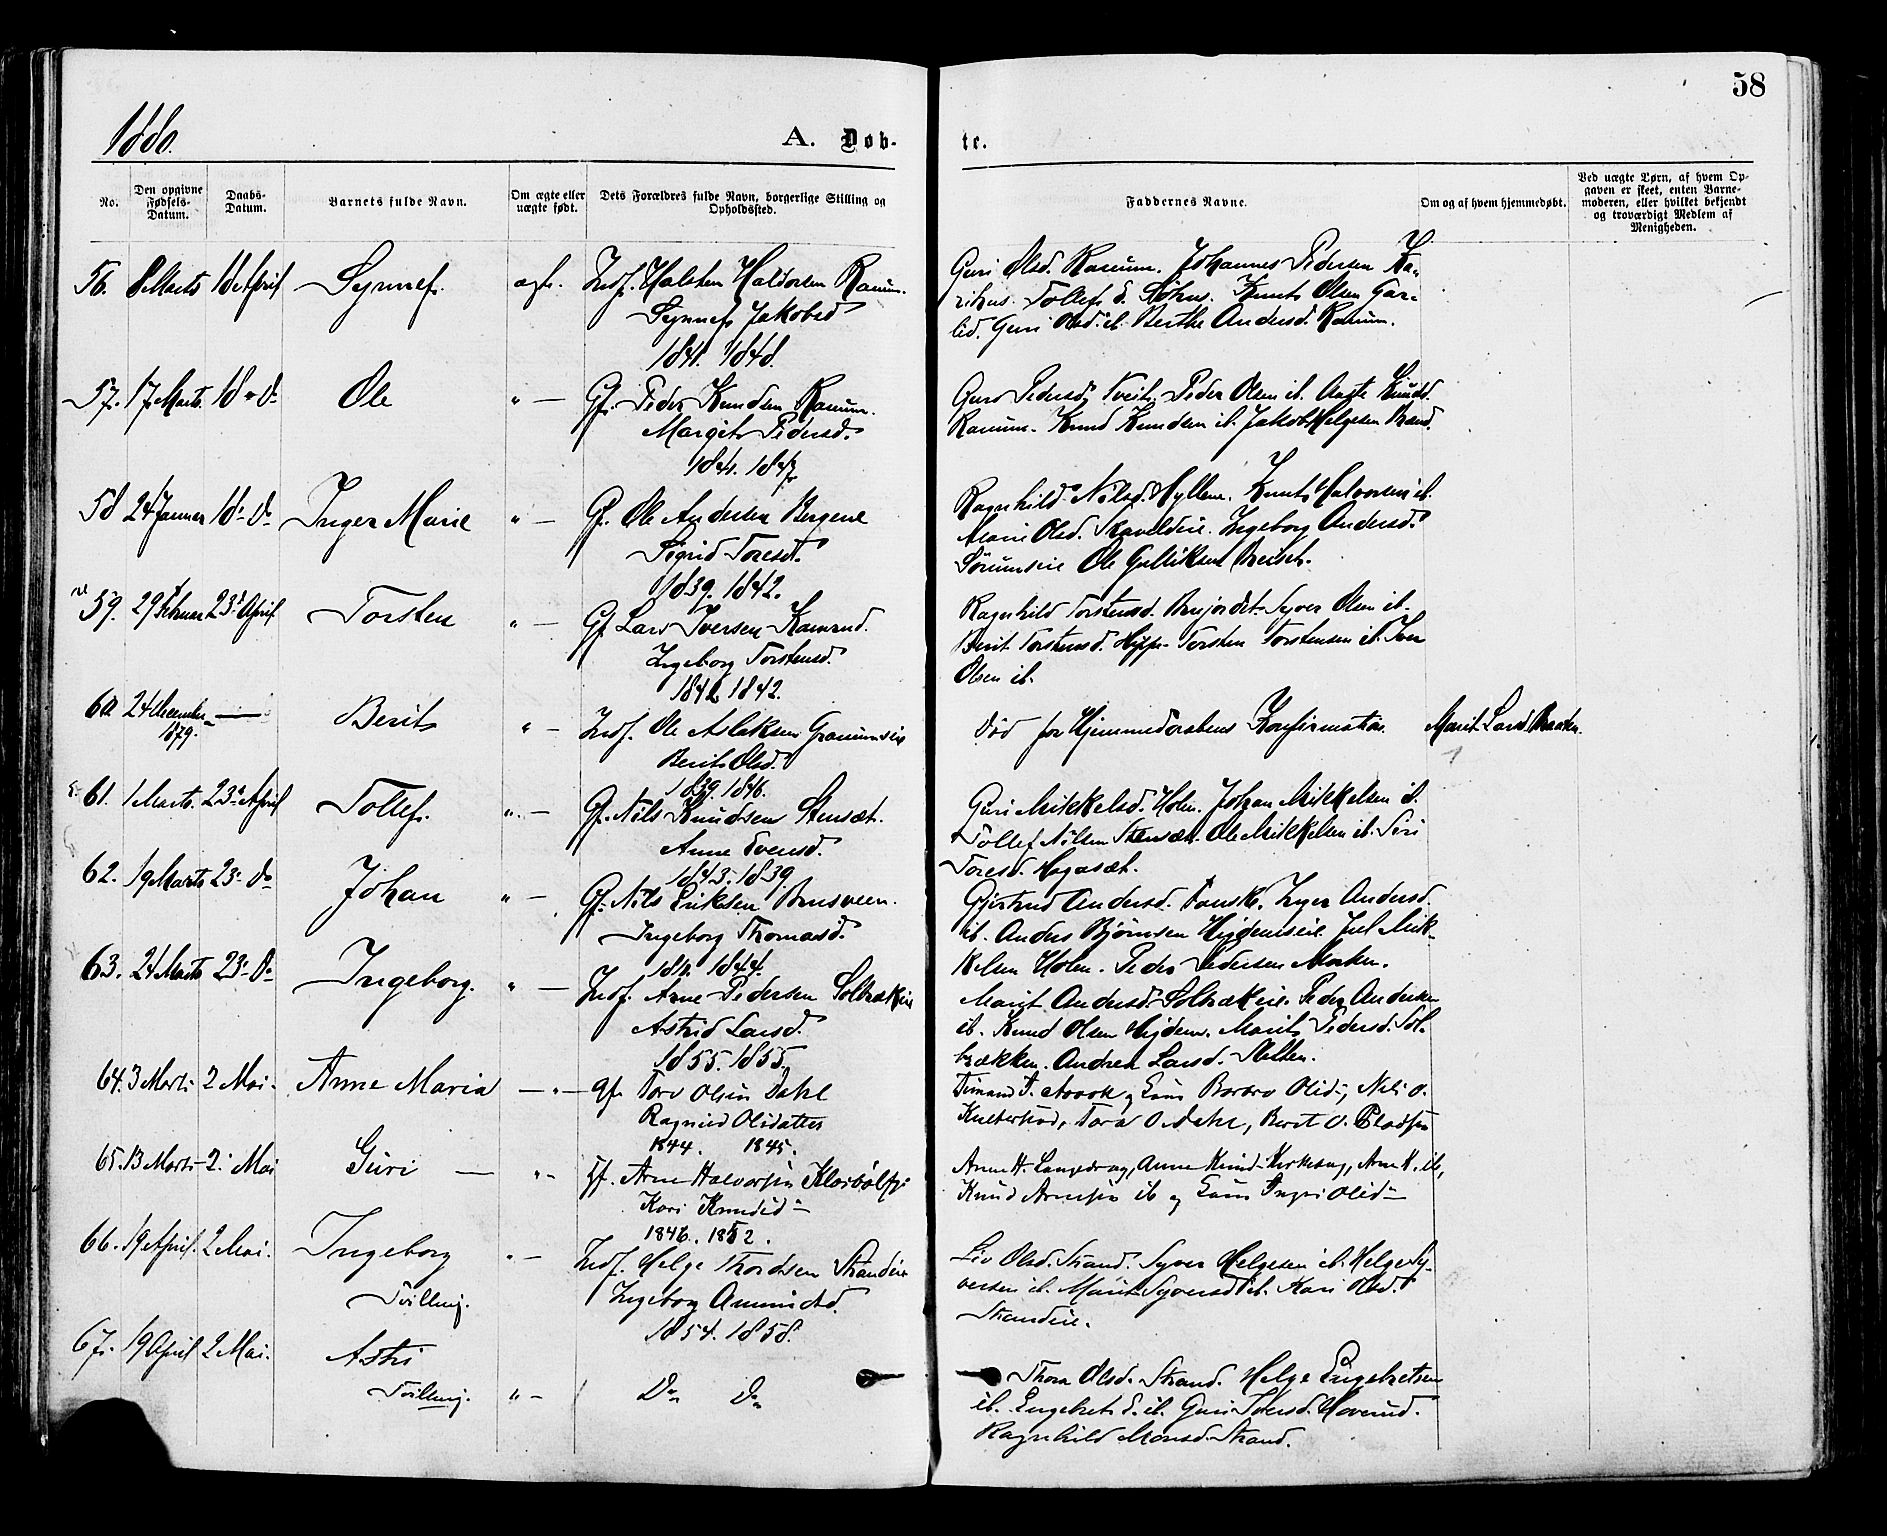 58
1880.
A. Døb-
te.
No.
Den opgivne Fødsels-Datum.
Daabs-Datum.
Barnets fulde Navn.
Om ægte eller uægte født.
Dets Forældres fulde Navn, borgerlige Stilling og Opholdssted.
Faddernes Navne.
Om og af hvem hjemmedøbt.
Ved uægte Børn, af hvem Op-
gaven er skeet, enten Barne-
moderen, eller hvilket bekjendt
og troværdigt Medlem af
Menigheden.
56. 8 Marts 18 April Synnef. ægte. Indf. Halsten Haldorsen Ranum.
Synnef Jakobsd
1841. 1848.
Guri Olsd. Ranum. Johannes Pedersen
Tollef Knut Olsen Gar-
lid. Guri Olsd. ib. Berthe Andersd. Ranum.
57. 17 Marts. 18 " Do Ole " — Gf. Peder Knudsen Ranum.
Margit Pedersd.
1841. 1847
Guro Pedersd. Tveit. Peder Olsen ib. Aagte Knudsd.
Ranum. Knud Knudsen ib. Jakob Helgesen
58 24 Januar 18 - Do Inger Marie " — Gf. Ole Andersen Bergene
Sigrid Toresd.
1839. 1842.
Ragnhild Nilsd. Hyllen. Knut Halvorsen ib.
Marie Olsd. Ingeborg Andersd.
Ole Gulliksen
59. 29 Februar 23 April Torsten " — Gf Lars Iversen
Ingeborg Torstensd.
1842 1842.
Ragnhild Torstensd. Syver Olsen ib.
Berit Torstensd. Torsten Torstensen ib. Iver
Olsen ib.
60. 24 December 1879. — Berit " — Indf. Ole Aslaksen
Berit Olsd.
1839. 1846.
Død før Hjemmedaabens Konfirmation. Marit Larsd. Braaten.
61. 1 Marts. 23 April Tollef. " — Gf. Nils Knudsen Stensæt.
Anne Svensd.
1843. 1839
Guri Mikkelsd. Holm. Johan Mikkelsen ib.
Tollef Nilsen Stensæt. Ole Mikkelsen ib. Siri
Toresd. Hagasæt.
62. 19 Marts 23 - Do Johan " — Gf. Nils Eriksen Brusveen.
Ingeborg Thomasd.
1844.
Gjertrud Andersd. Inger Andersd.
ib. Anders Bjørnsen Juel Mik-
kelsen Holm. Peder Pedersen Morken.
63. 24 Marts 23 - Do Ingeborg. " — Indf. Arne Pedersen
Astrid Larsd.
1855. 1855.
Marit Andersd. Peder Andersen
ib. Knud Olsen Marit Pedersd. Sol-
brækken. Andrea Larsd.
64. 3 Marts 2 Mai - Anne Maria — " — Gf. Tore Olsen Dahl
Ragnild Olsdatter
1844. 1845.
Barbro Olsd-, Nils O.
Tora O. Dahl, Berit O.
65. 13 Marts - 2. Mai Guri — " - Gf. Arne Halvorsen
Kari Knudsd -
1846. 1852.
Arne H. Anne Knud- Arne K. ib,
Knud Arnesen ib og Ingri Olsd -
66. 19 April. 2 Mai. Ingeborg " — Indf. Helge Thordsen Strandeie
Tvilling. Ingeborg Amundsd.
1854. 1858.
Liv Olsd. Strand. Syver Helgesen ib. Helge Sy-
versen ib. Marit Syversd ib. Kari Olsd.
Strandeie.
67. 19 April 2 Mai. Astri
Tvilling. " — Do Do
Thora Olsd. Strand. Helge Engebretsen
ib. Engebret S. ib. Guri Iversd. Hoverud.
Ragnhild Monsd. Strand.